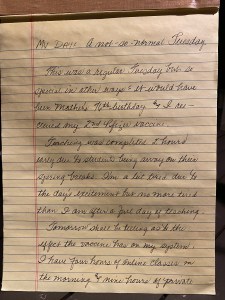 My Day: A not-so-normal Tuesday
This was a regular Tuesday but so
special in other ways & it would have
been Mother's 96th birthday & I re-
ceived my 2nd Pfizer vaccine.
Teaching was completed 2 hours
early due to students being away on their
spring breaks. I'm a bit tired due to
the day's excitement but no more tired
than I am after a full day of teaching.
Tomorrow shall be telling as to the
effect the vaccine has on my system.
I have four hours of online classes in
the morning & nine hours of private